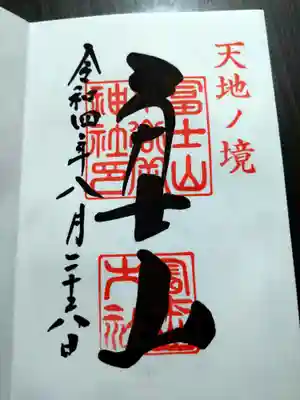 天地ノ境
富士山
富士山
神社印
令和四年八月二十八日